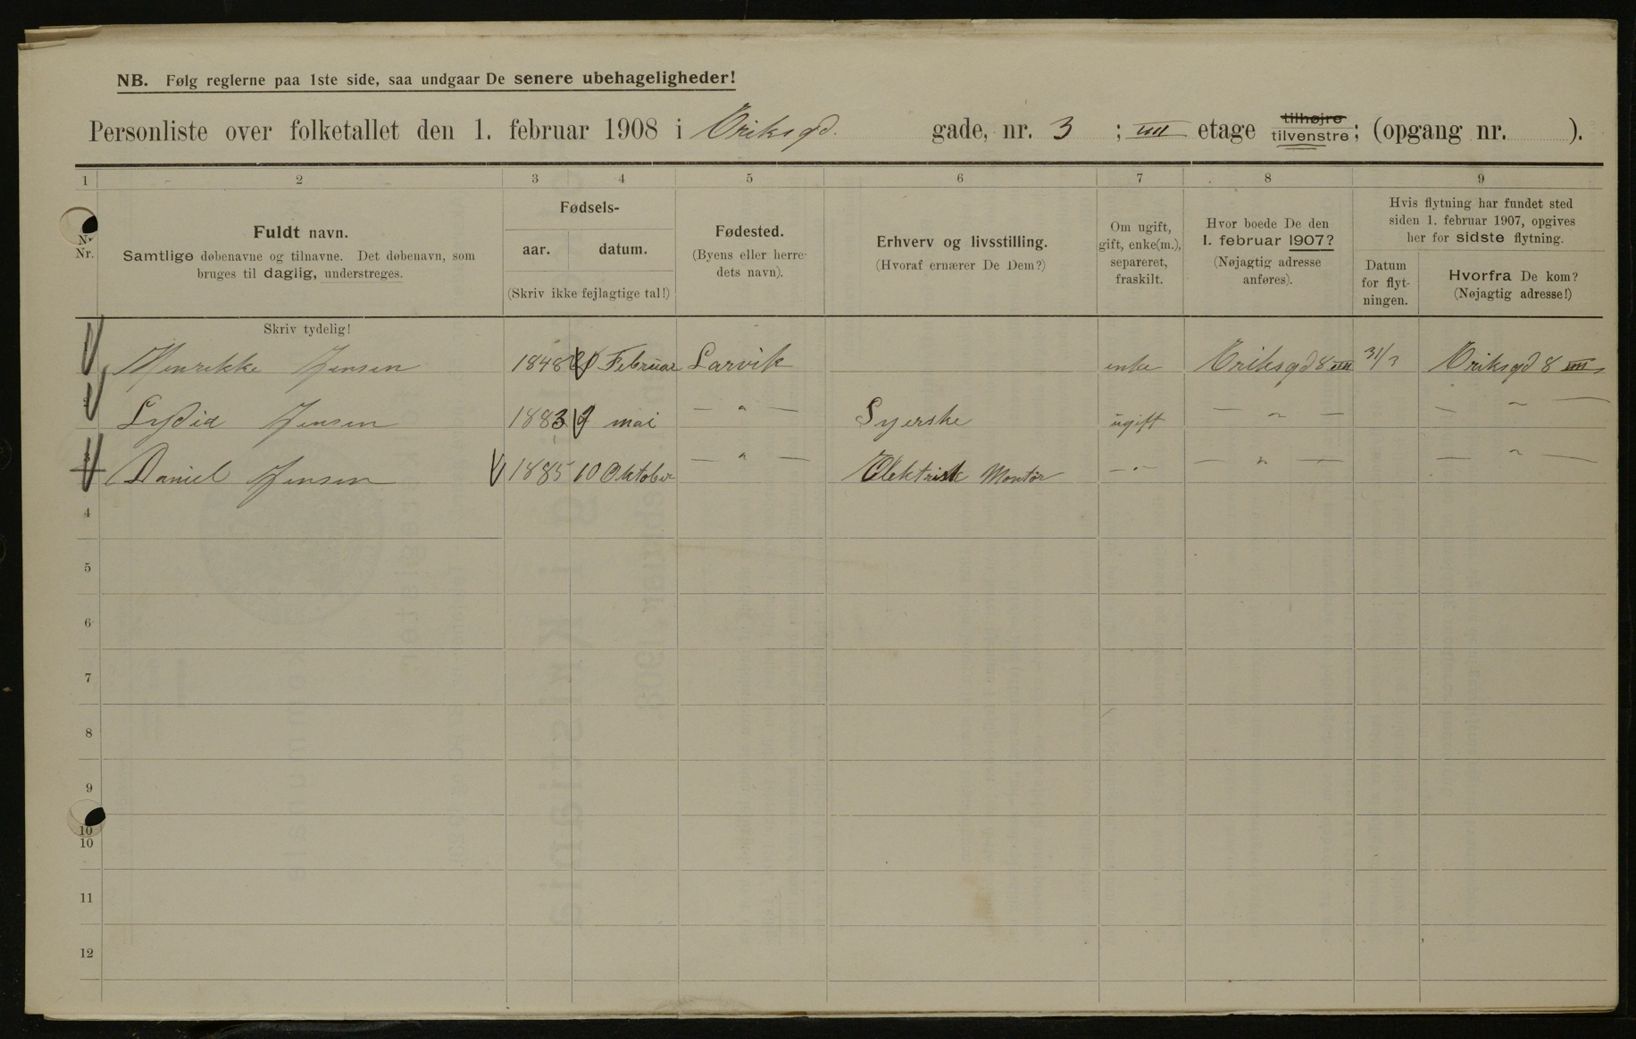 NB. Følg reglerne paa 1ste side, saa undgaar De senere ubehageligheder!
Personliste over folketallet den 1. februar 1908 i Eriksgd. gade, nr. 3 ; IIII etage tilhøjre tilvenstre; (opgang nr. ).
1 2 3 4 5 6 7 8 9
Nr. Fuldt navn. Samtlige døbenavne og tilnavne. Det døbenavn, som bruges til daglig, understreges.
Fødsels- aar. datum. (Skriv ikke fejlagtige tal!)
Fødested. (Byens eller herredets navn).
Erhverv og livsstilling. (Hvoraf ernærer De Dem?)
Om ugift, gift, enke(m.), separeret, fraskilt.
Hvor boede De den 1. februar 1907? (Nøjagtig adresse anføres).
Hvis flytning har fundet sted siden 1. februar 1907, opgives her for sidste flytning.
Datum for flytningen.
Hvorfra De kom? (Nøjagtig adresse!)
Skriv tydelig!
Henrikke Jensen 1848 Februar Larvik enke Eriksgd 8 IIII Eriksgd 8 IIII
Lydia Jensen 1883 9 mai — " — Syerske ugift — " — — " —
Daniel Jensen 1885 10 Oktober — " — Elektrisk Montør — " — — " — — " —
4
5
6
7
8
9
10
10
11
12